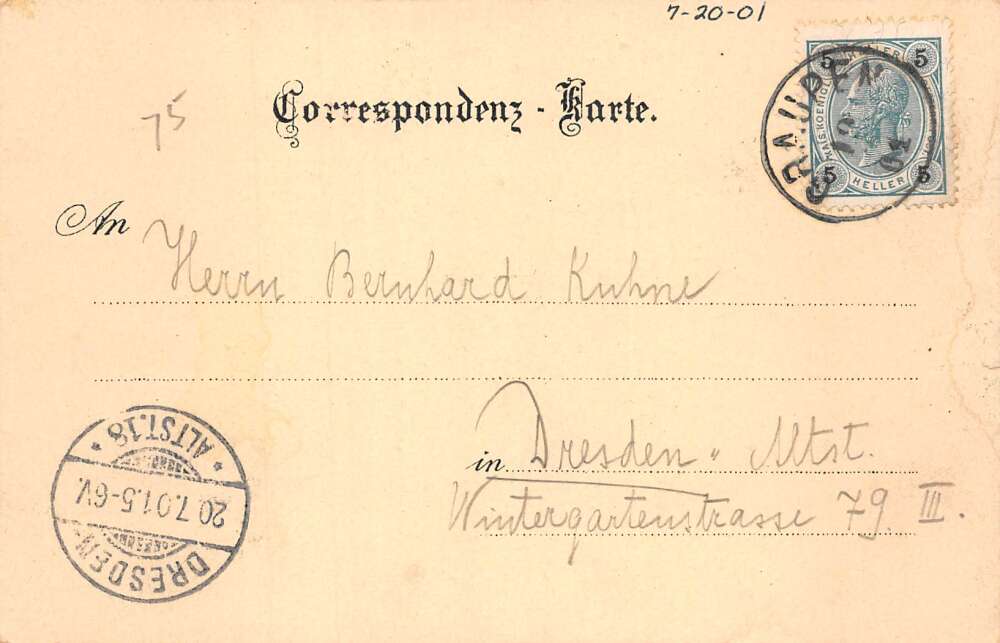 7-20-01
75
Correspondenz-Karte.
5 HELLER 5
KAIS. KOENIGL.
5 HELLER 5
GRAUPEN
19
01
An Herrn Bernhard Kuhne
in Dresden" Altst.
Wintergartenstrasse 79 III.
* ALTST.18 *
20.7.01.5-6V.
DRESDEN-